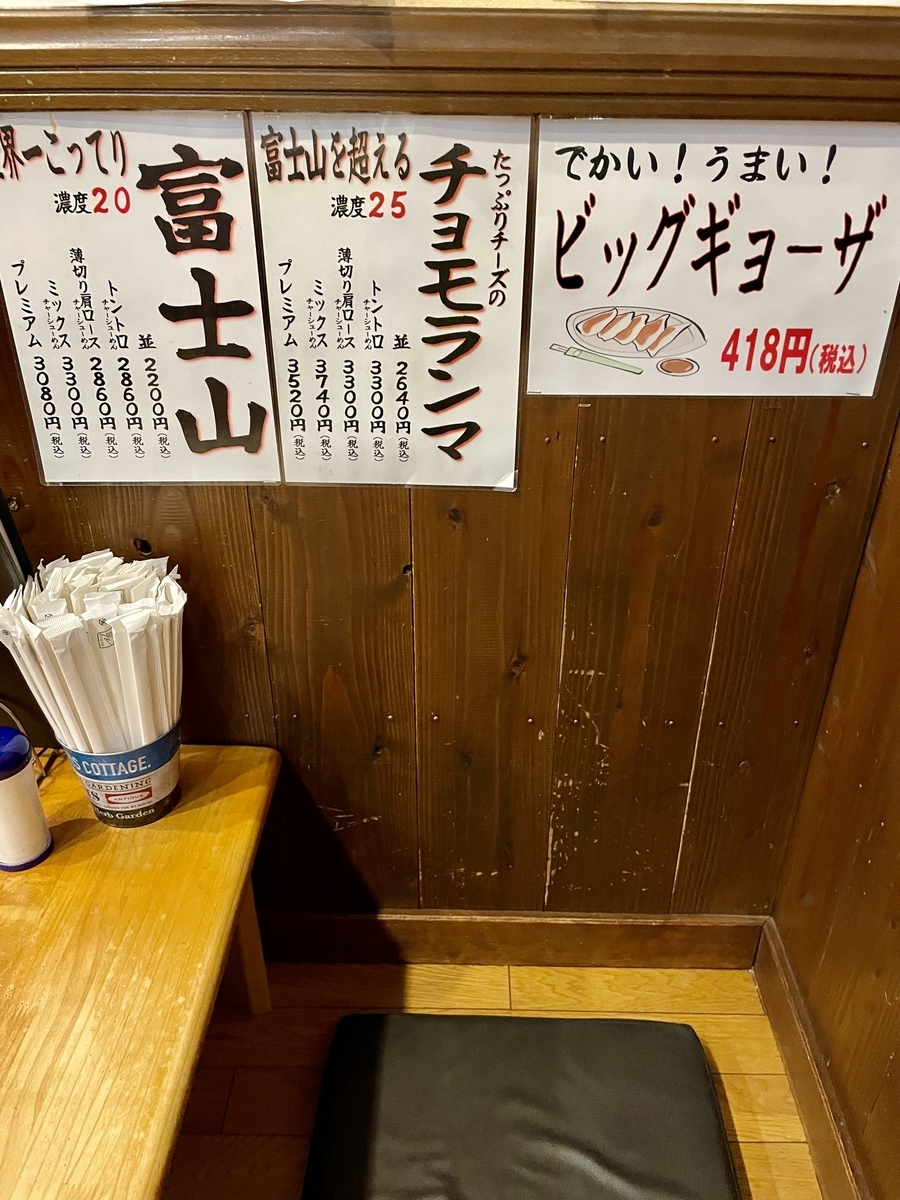 界一こってり
濃度20
富士山
並 2200円(税込)
トントロチャーシューめん 2860円(税込)
薄切り肩ロースチャーシューめん 2860円(税込)
ミックスチャーシューめん 3300円(税込)
プレミアム 3080円(税込)
富士山を超える
濃度25
たっぷりチーズの
チョモランマ
並 2640円(税込)
トントロチャーシューめん 3300円(税込)
薄切り肩ロースチャーシューめん 3300円(税込)
ミックスチャーシューめん 3740円(税込)
プレミアム 3520円(税込)
でかい!うまい!
ビッグギョーザ
418円(税込)
S COTTAGE.
GARDENING
ANTIQUE
erb Garden